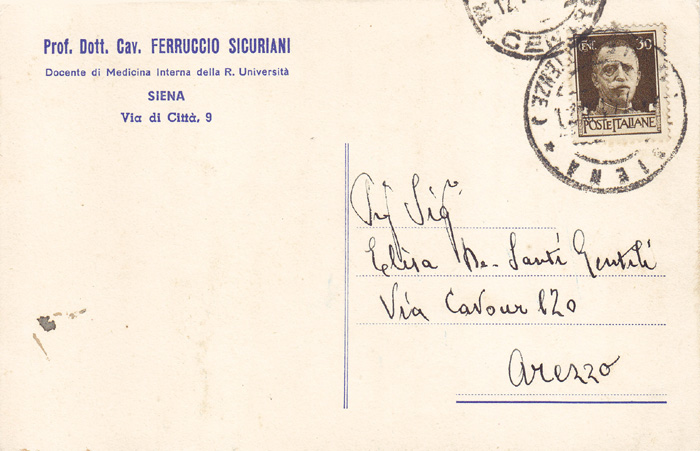 Prof. Dott. Cav. FERRUCCIO SICURIANI
Docente di Medicina Interna della R. Università
SIENA
Via di Città, 9
CENT. 30
POSTE ITALIANE
SIENA
Sigª
Elisa De-Santi Gentili
Via Cavour 120
Arezzo